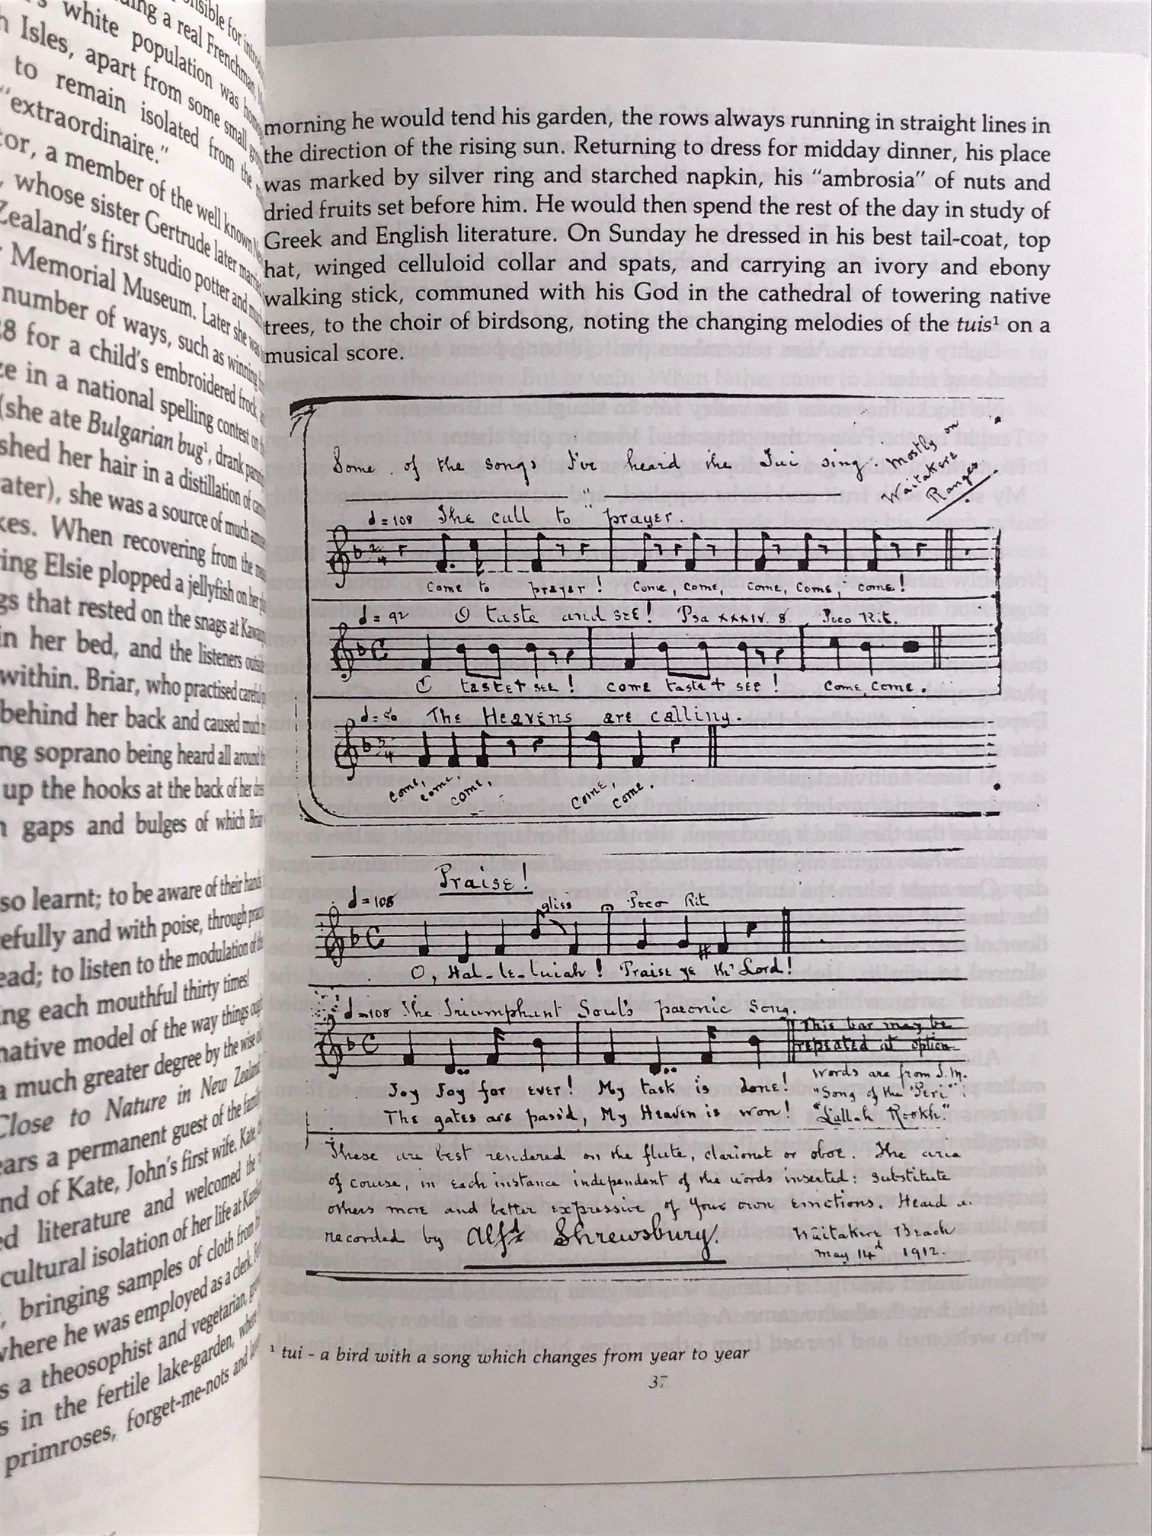 white population was
Isles, apart from some small
to remain isolated from the
"extraordinaire."
a member of the well known
whose sister Gertrude later
Zealand's first studio potter and
Memorial Museum. Later she was
number of ways, such as winning
for a child's embroidered frock,
in a national spelling contest
(she ate Bulgarian bug¹, drank
her hair in a distillation of
she was a source of much
When recovering from the
Elsie plopped a jellyfish on her
that rested on the snags at
in her bed, and the listeners
within. Briar, who practised
behind her back and caused much
soprano being heard all around
up the hooks at the back of her
gaps and bulges of which
so learnt; to be aware of their hands
and with poise, through
to listen to the modulation of the
each mouthful thirty times!
model of the way things
a much greater degree by the
Close to Nature in New Zealand
a permanent guest of the family
of Kate, John's first wife. Kate
literature and welcomed the
cultural isolation of her life at
bringing samples of cloth from
where he was employed as a clerk.
a theosophist and vegetarian,
in the fertile lake-garden, where
primroses, forget-me-nots and
morning he would tend his garden, the rows always running in straight lines in
the direction of the rising sun. Returning to dress for midday dinner, his place
was marked by silver ring and starched napkin, his "ambrosia" of nuts and
dried fruits set before him. He would then spend the rest of the day in study of
Greek and English literature. On Sunday he dressed in his best tail-coat, top
hat, winged celluloid collar and spats, and carrying an ivory and ebony
walking stick, communed with his God in the cathedral of towering native
trees, to the choir of birdsong, noting the changing melodies of the tuis¹ on a
musical score.
Some of the songs I've heard the Tui sing. Mostly on
Waitakere
Ranges
♩=108 The call to "prayer.
Come to prayer! Come, come, come, come, come!
♩=92 O taste and see! Psa xxxiv. 8 Poco Rit.
O taste + see! come taste + see! Come, come.
♩=50 The Heavens are calling.
come, come, come, come, come.
Praise!
♩=108 gliss Poco Rit
O, Hal-le-luiah! Praise ye th' Lord!
♩=108 The Triumphant Soul's paeonic Song.
This bar may be
repeated at option.
Joy Joy for ever! My task is done!
The gates are pass'd, My Heaven is won!
Words are from T.M.
"Song of the 'Peri'":
"Lallah Rookh."
These are best rendered on the flute, clarionet or oboe. The aria
of course, in each instance independent of the words inserted: substitute
others more and better expressive of your own emotions. Heard &
recorded by Alfd Shrewsbury
Waitakere Beach
May 14th 1912.
¹ tui - a bird with a song which changes from year to year
37